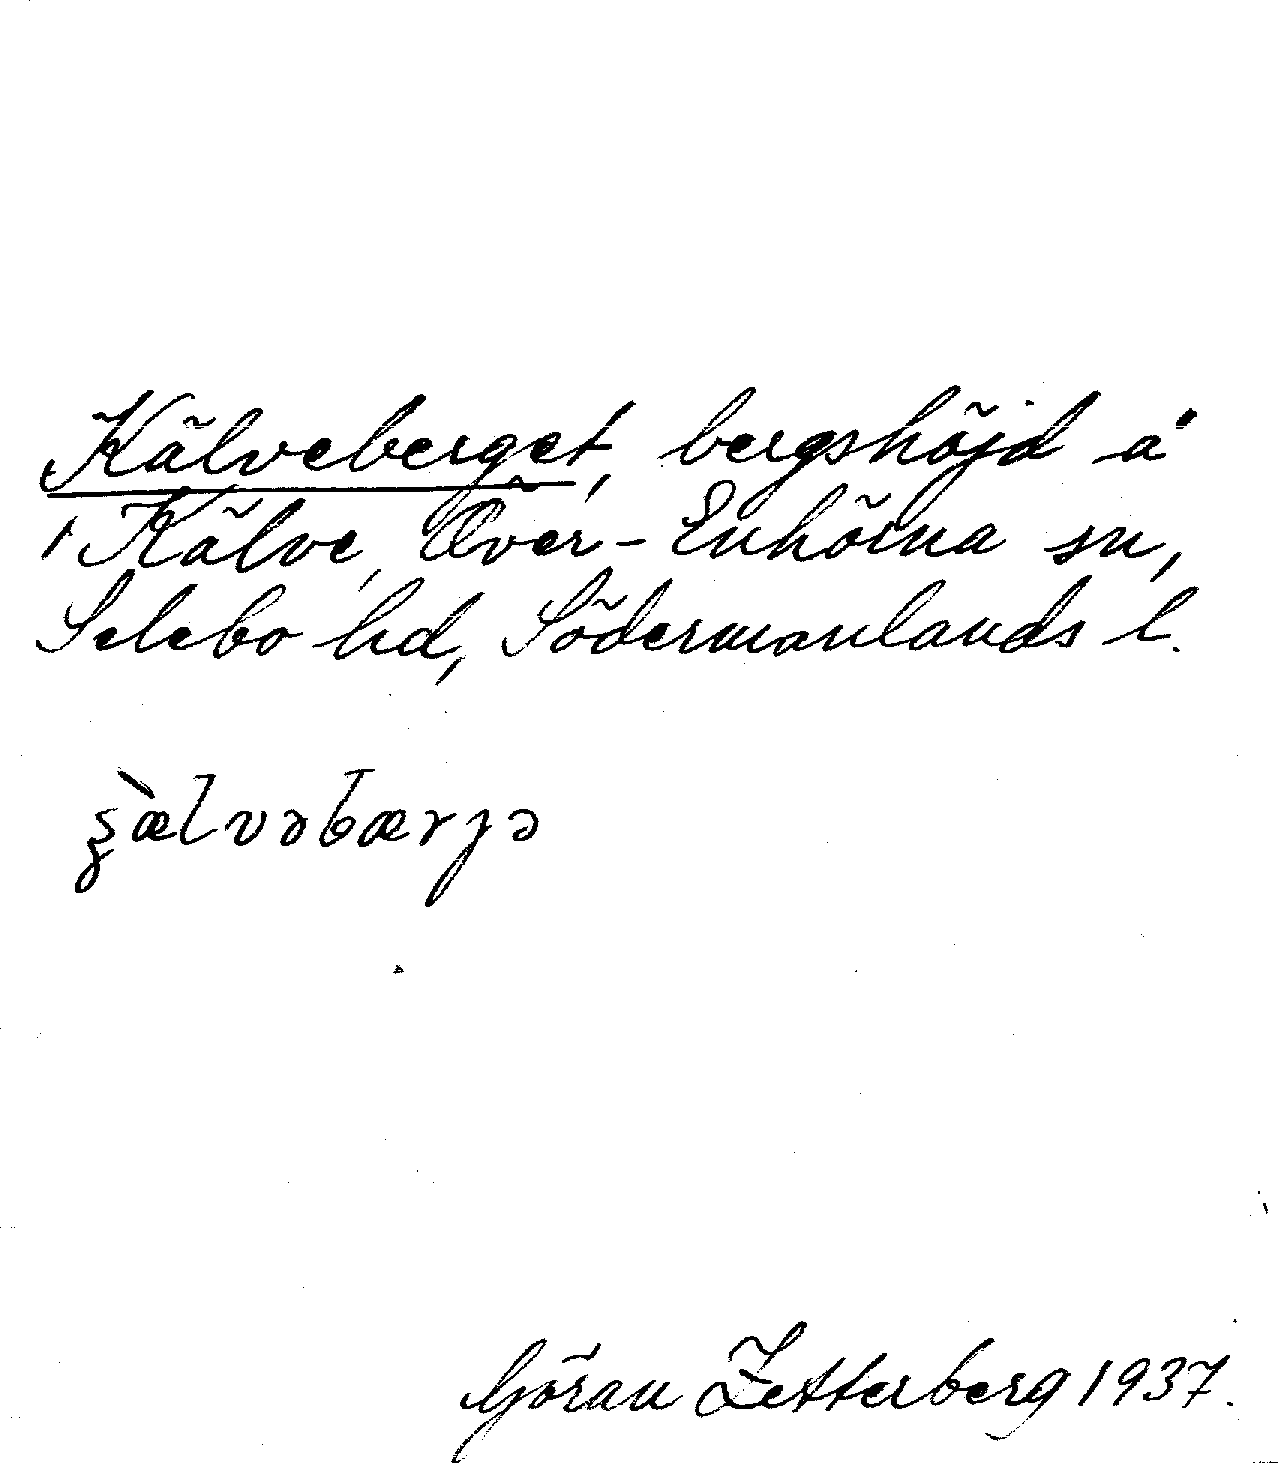 Kälveberget, bergshöjd å
1 Kälve, Över-Enhörna sn,
Selebo hd, Södermanlands l.
ʂæ̀lvəbærjə
Göran Zetterberg 1937.